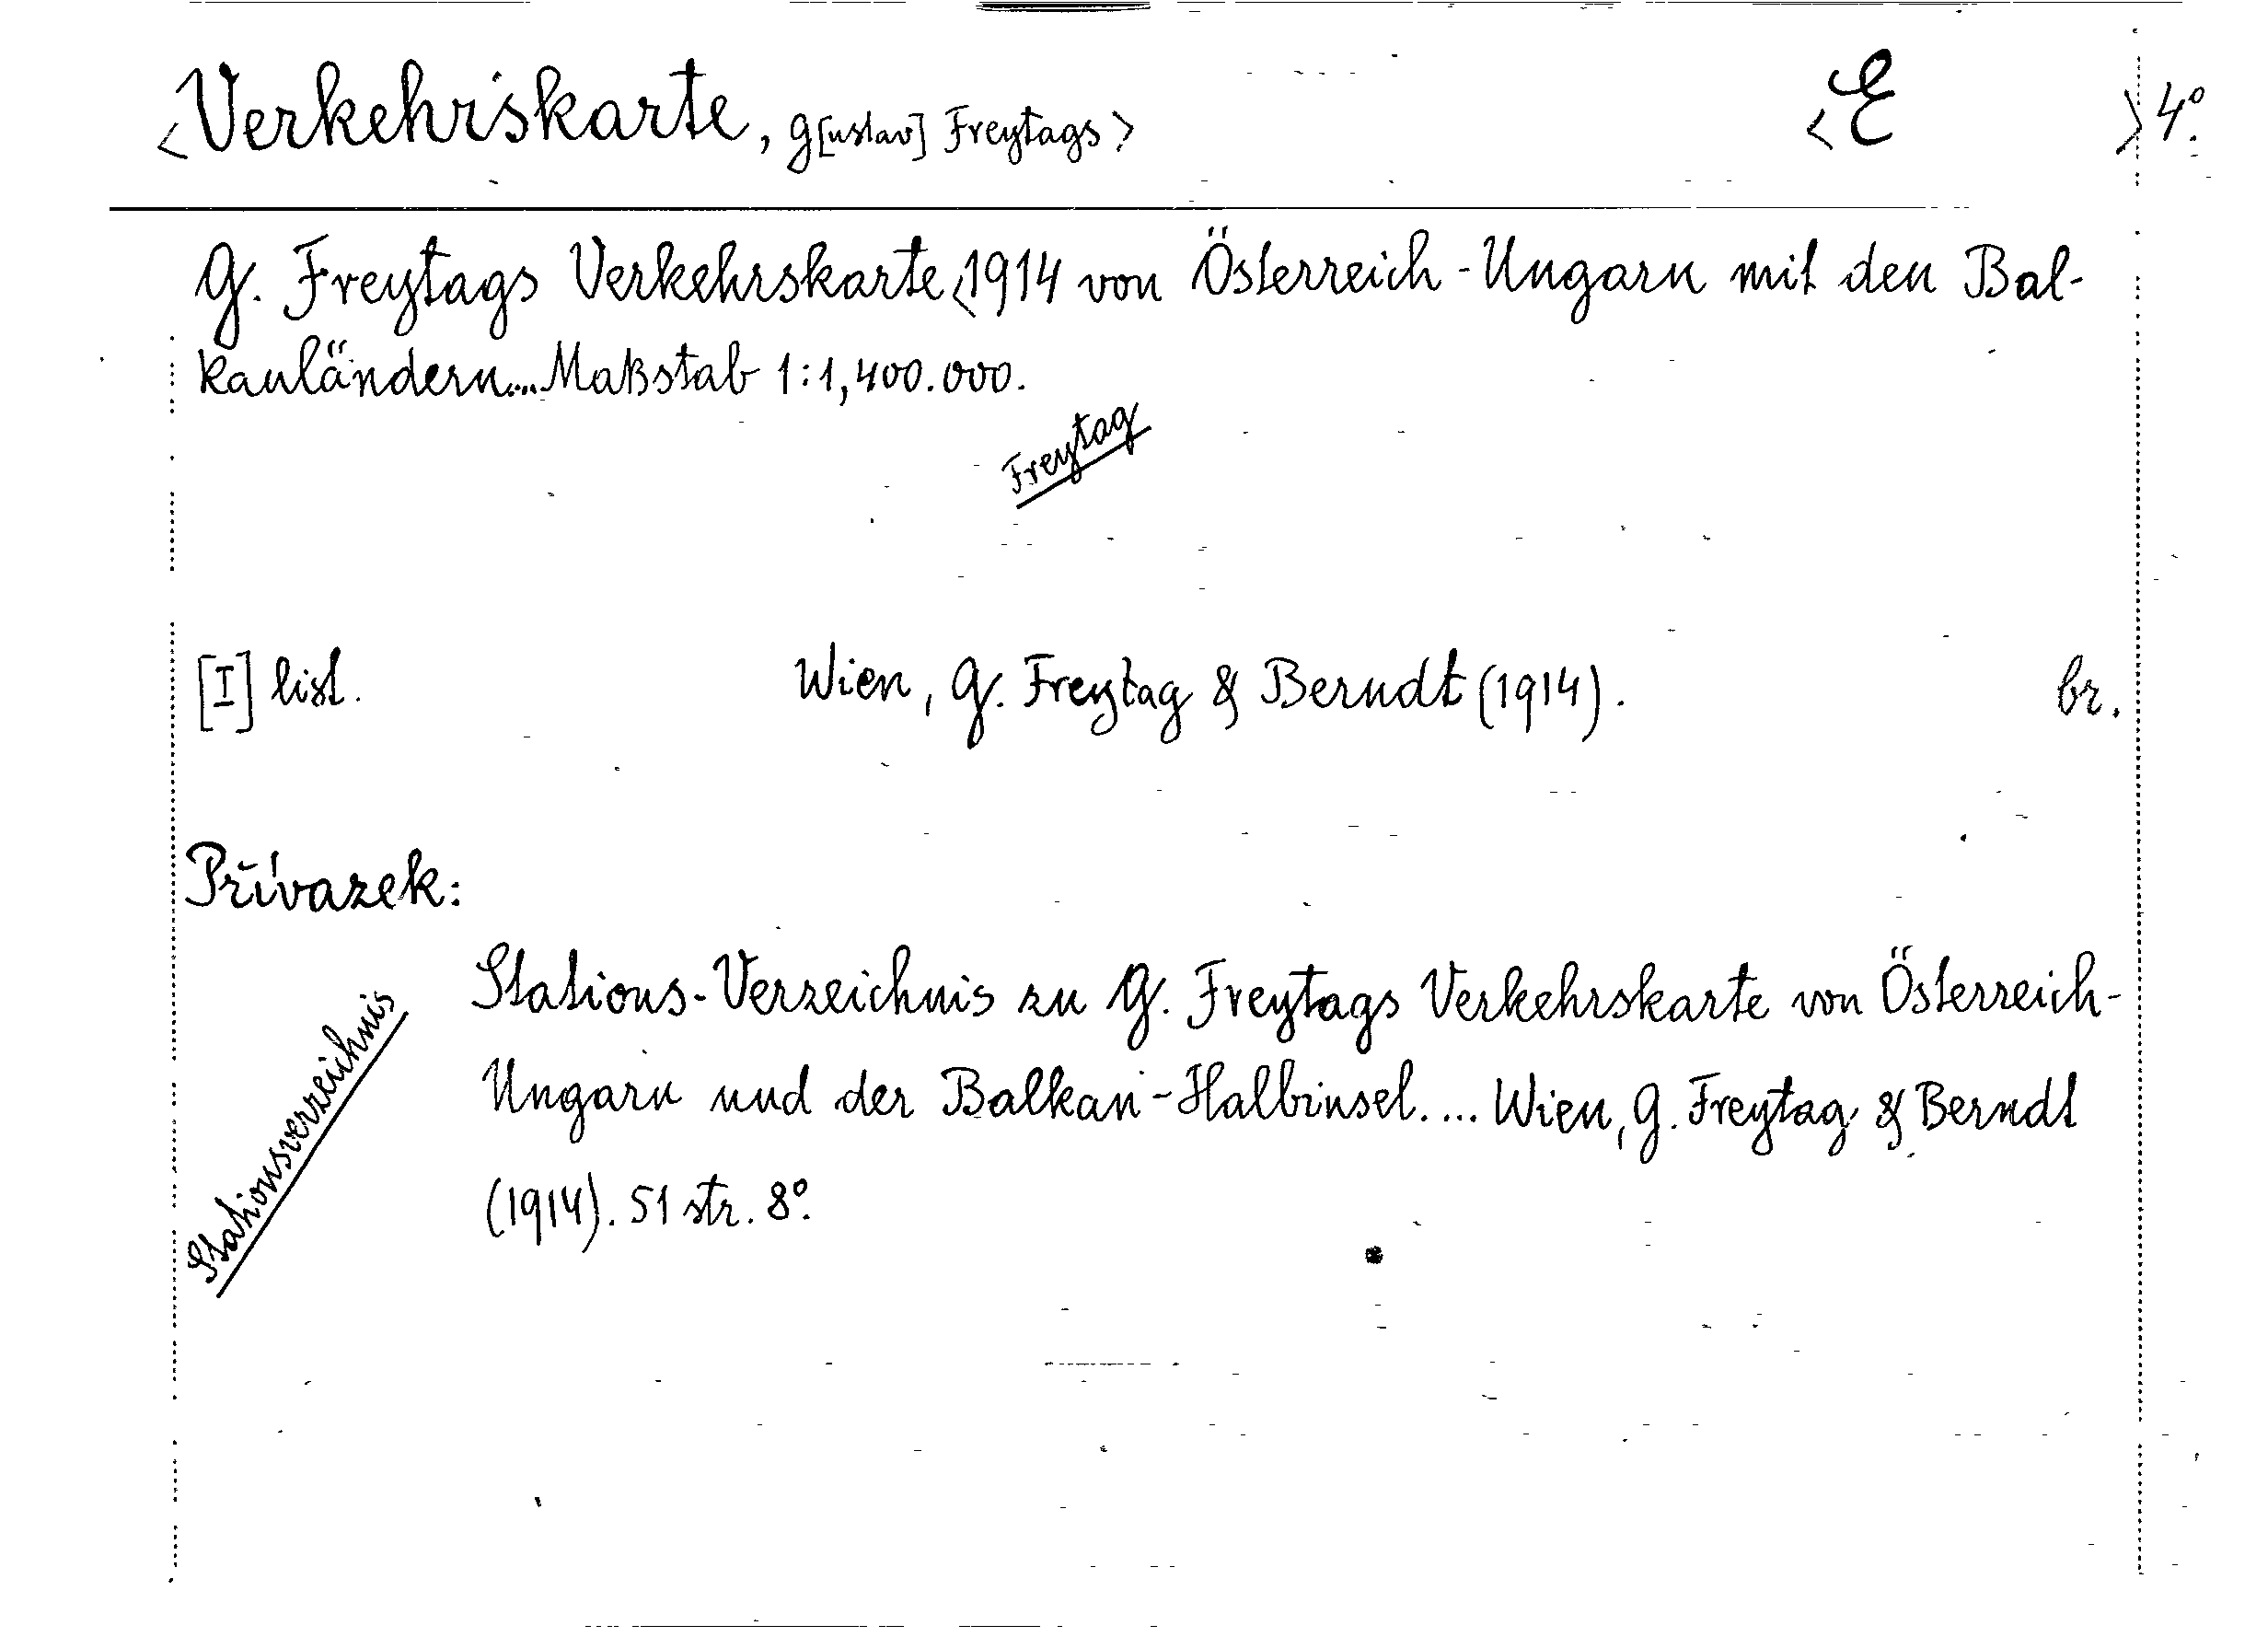 <Verkehrskarte, G[ustav] Freytags> <E >4°.
G. Freytags Verkehrskarte<1914 von Österreich-Ungarn mit den Bal-
kanländern...Maßstab 1:1,400.000.
Freytag
[I] list. Wien, G. Freytag & Berndt (1914). br.
Přívazek:
Stations-Verzeichnis zu G. Freytags Verkehrskarte von Österreich-
Ungarn und der Balkan-Halbinsel.... Wien, G. Freytag & Berndt
(1914). 51 str. 8°.
Stationsverzeichnis